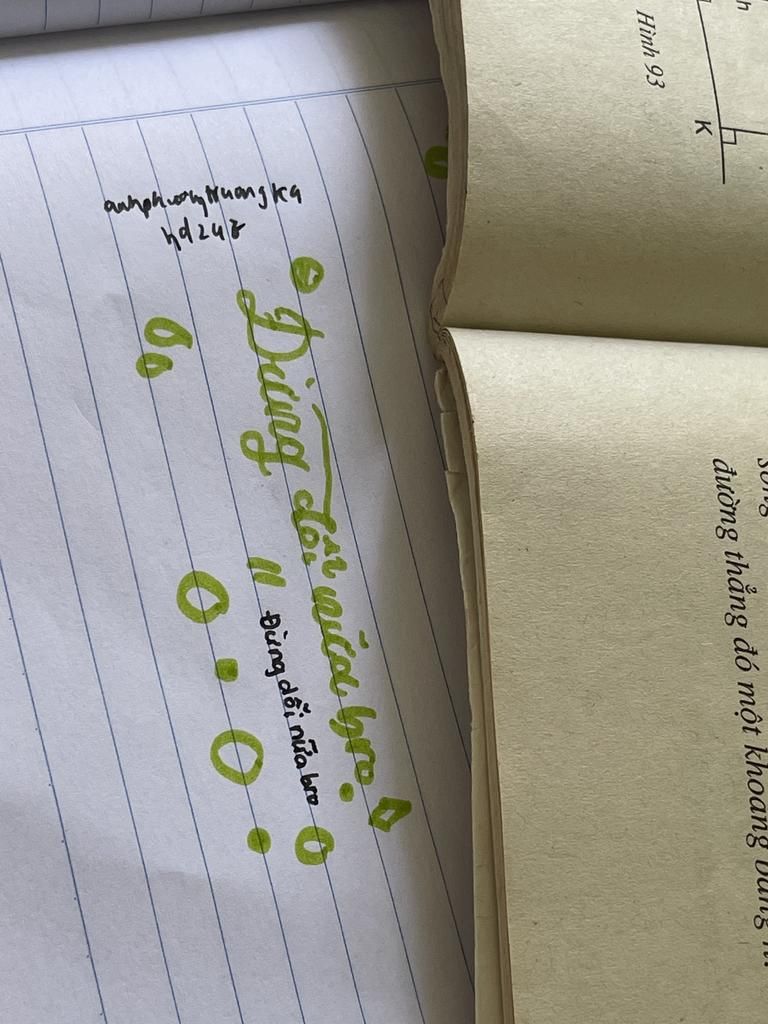 anhphuongtruongka
hd248
Đừng dỗi nữa bro
" Đừng dỗi nữa bro
Hình 93
K
h
sông
đường thẳng đó một khoảng bằng h.